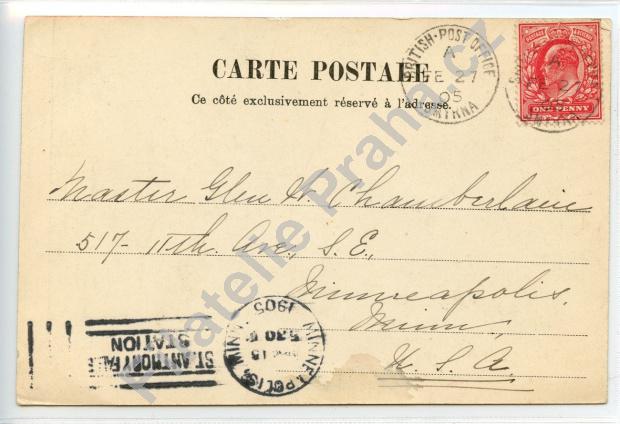 CARTE POSTALE
Ce côté exclusivement réservé à l'adresse.
BRITISH·POST OFFICE
A
FE 27
05
SMYRNA
ONE PENNY
Master Glen H. Chamberlain
517- 11th Ave., S.E.,
Minneapolis,
Minn,
U.S.A.
MINNEAPOLIS, MINN
1905
ST. ANTHONY FALLS
STATION
Filatelie Praha.cz